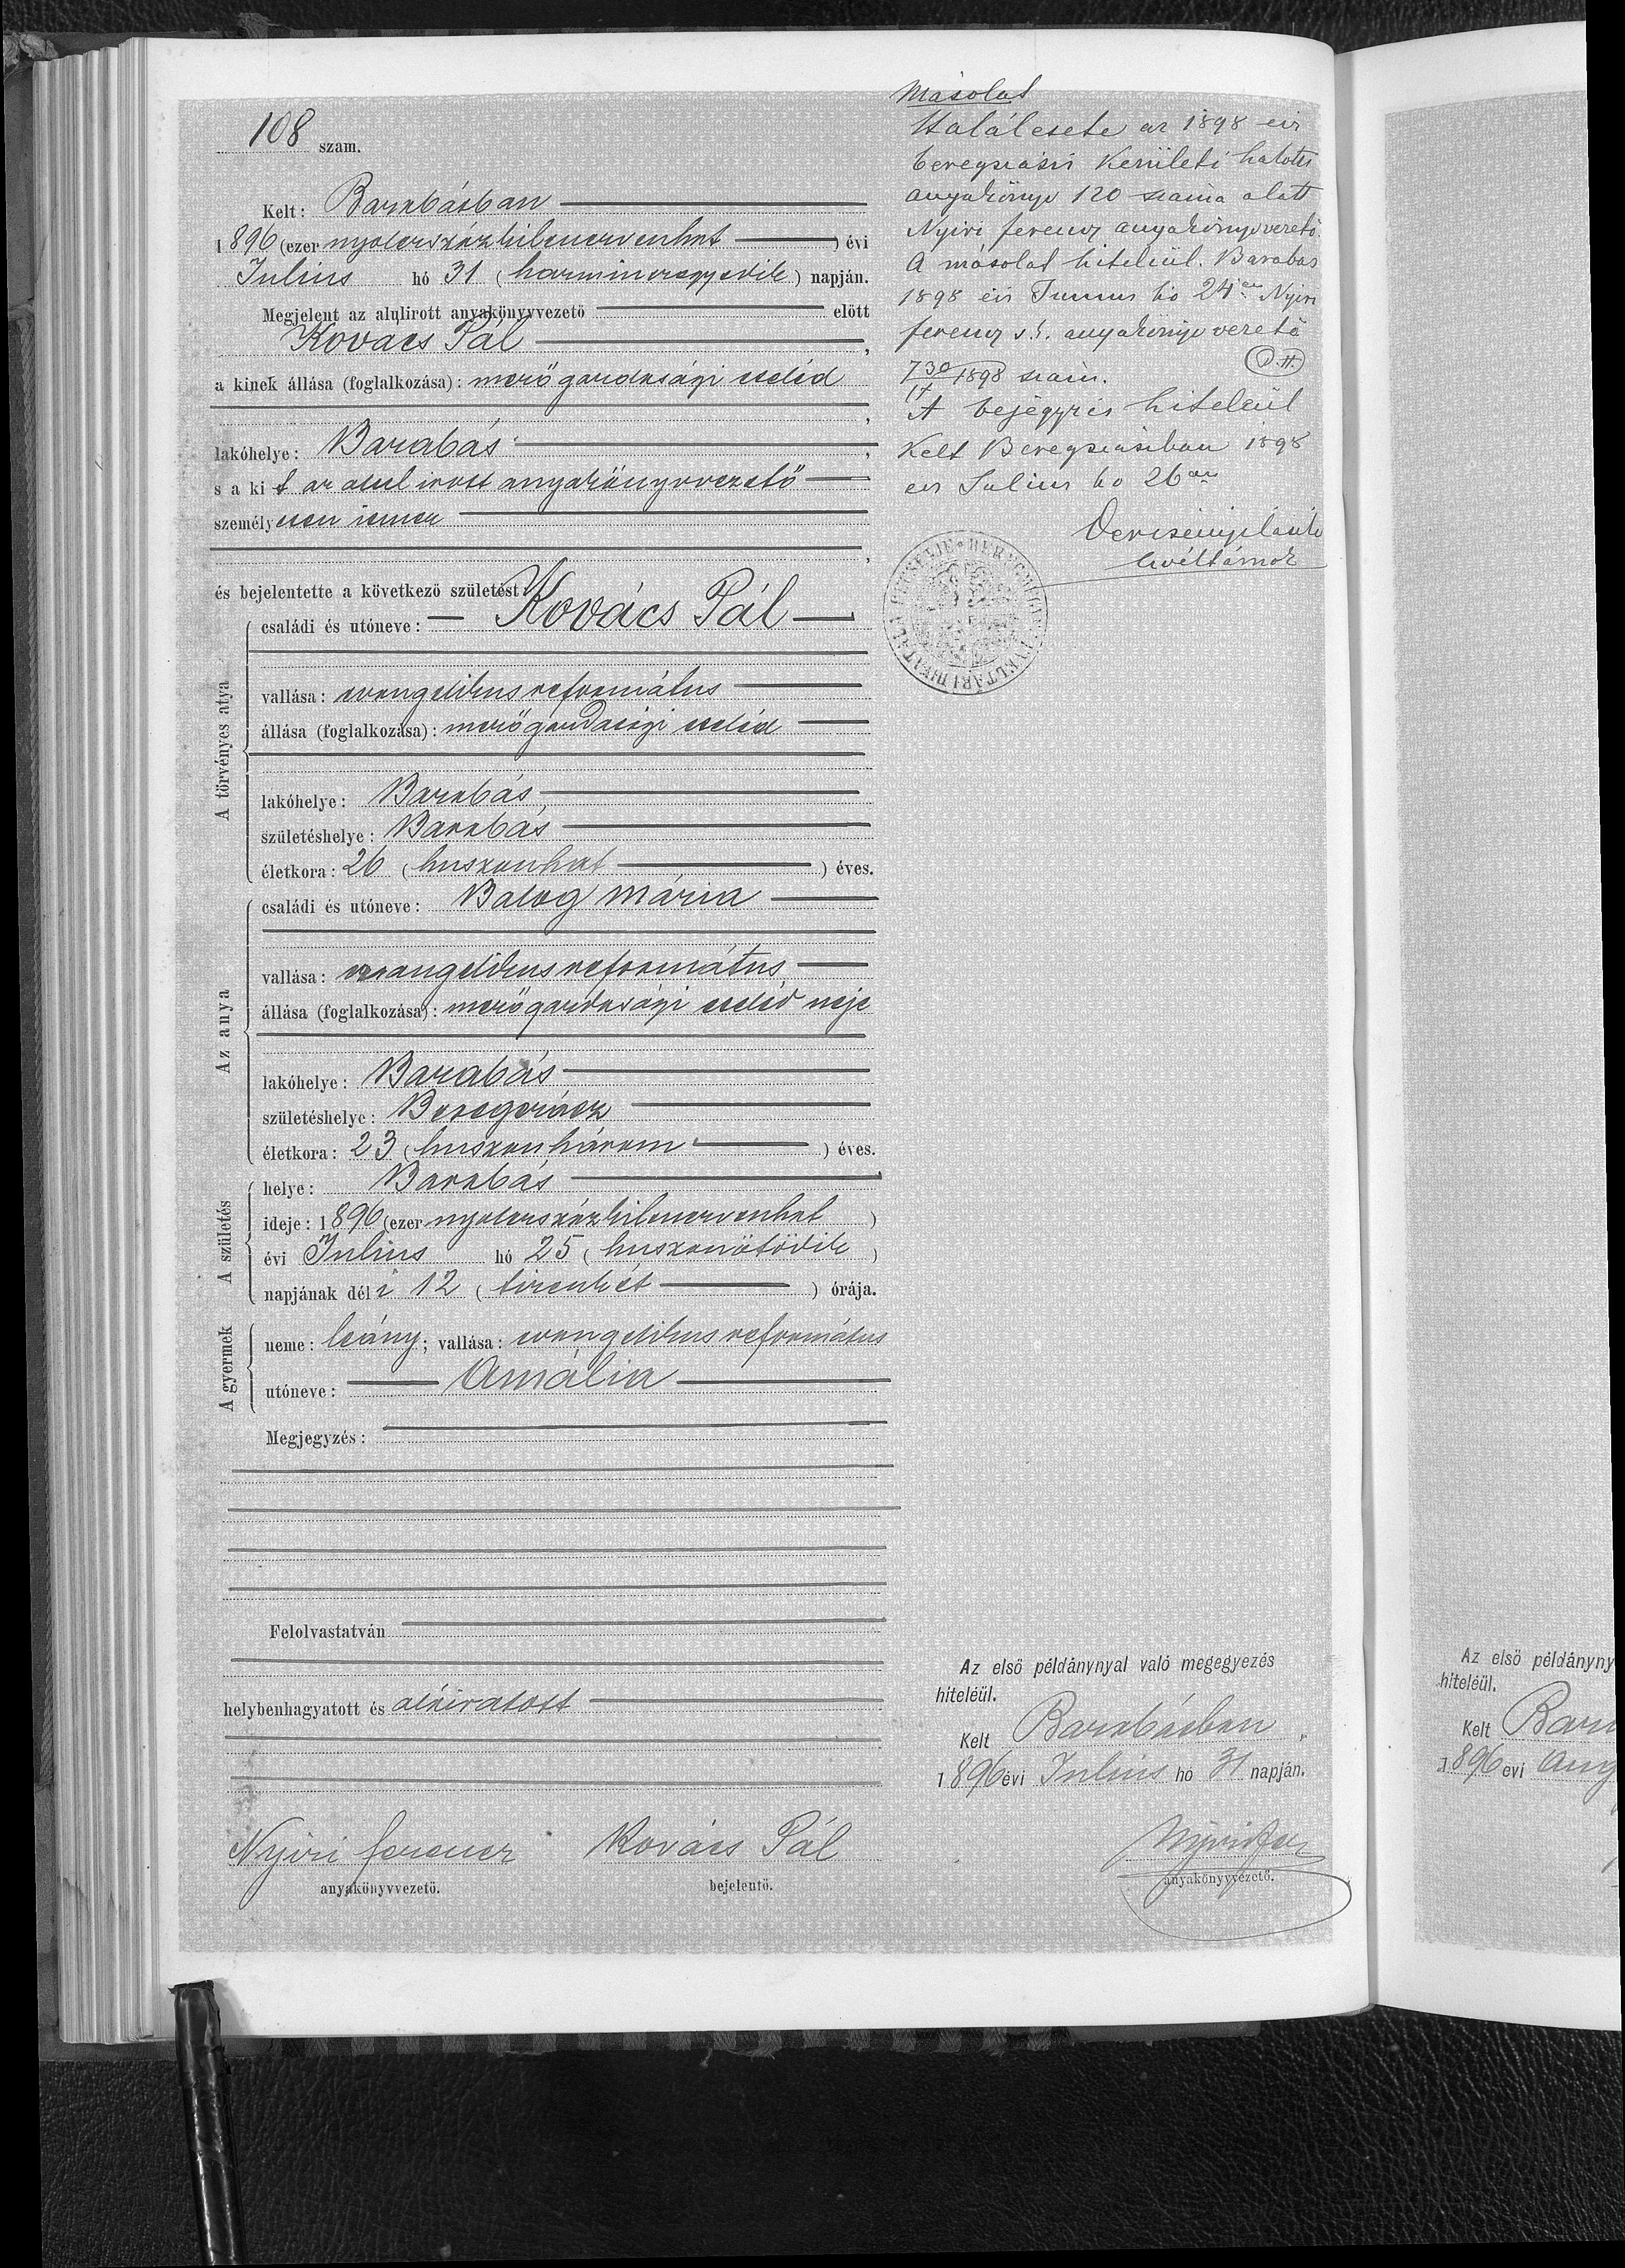 108 szám.
Kelt: Barabásban
1896 (ezer nyolcszázkilencvenhat) évi
Julius hó 31 (harmincegyedik) napján.
Megjelent az alulirott anyakönyvvezető előtt
Kovács Pál,
a kinek állása (foglalkozása): mezőgazdasági cseléd
,
lakóhelye: Barabás,
s a kit az alulirott anyakönyvvezető
személyesen ismer
,
és bejelentette a következő születést:
A törvényes atya
családi és utóneve: Kovács Pál
vallása: evangelikus református
állása (foglalkozása): mezőgazdasági cseléd
lakóhelye: Barabás
születéshelye: Barabás
életkora: 26 (huszonhat) éves.
Az anya
családi és utóneve: Balog Mária
vallása: evangelikus református
állása (foglalkozása): mezőgazdasági cseléd neje
lakóhelye: Barabás
születéshelye:
életkora: 23 (huszonhárom) éves.
A születés
helye: Barabás
ideje: 1896 (ezer nyolcszázkilencvenhat)
évi Julius hó 25 (huszonötödik)
napjának déli 12 (tizenkét) órája.
A gyermek
neme: leány; vallása: evangelikus református
utóneve: Amália
Megjegyzés:
Felolvastatván
helybenhagyatott és aláiratott
Nyiri Ferencz Kovács Pál
anyakönyvvezető. bejelentő.
Másolat
Halálesete az 1898 évi
beregszászi kerületi halotti
anyakönyv 120 száma alatt
Nyiri Ferencz anyakönyvvezető.
A másolat hiteléül. Barabás
1898 évi Junius hó 24én Nyiri
Ferencz s.k. anyakönyvvezető
P.H.
730/1898 szám.
A bejegyzés hiteléül
Kelt Beregszászban 1898
évi Julius hó 26án
levéltárnok
Az első példánynyal való megegyezés
hiteléül.
Kelt Barabásban,
1896 évi Julius hó 31 napján.
Nyiri Fer
anyakönyvvezető.
Az első példányny
hiteléül.
Kelt Bara
1896 évi Aug